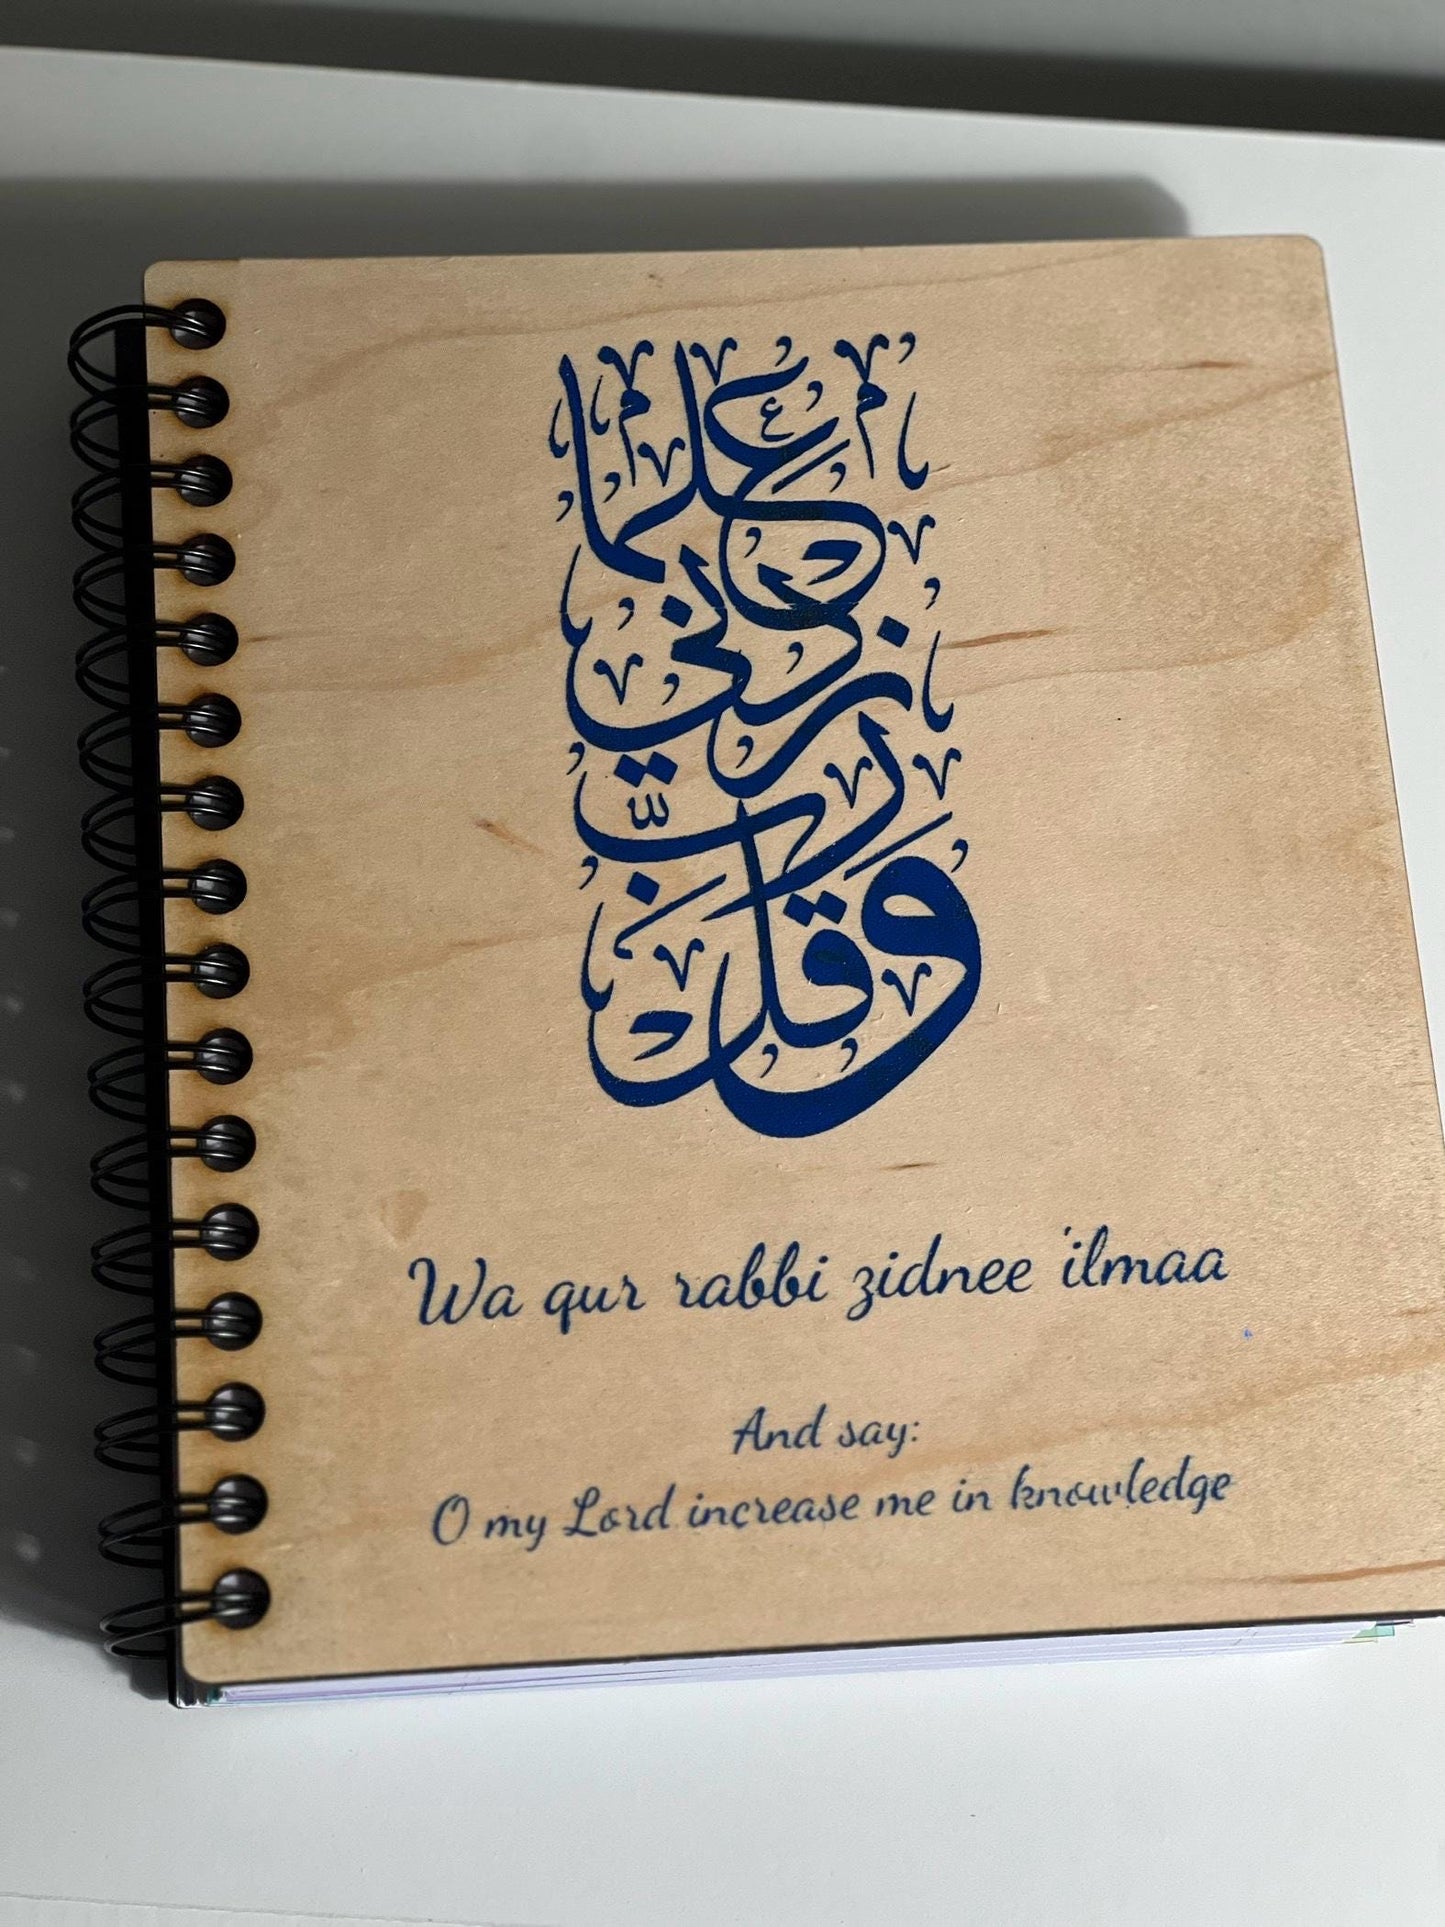 وَقُل رَّبِّ زِدْنِي عِلْمًا
Wa qur rabbi zidnee 'ilmaa
And say:
O my Lord increase me in knowledge